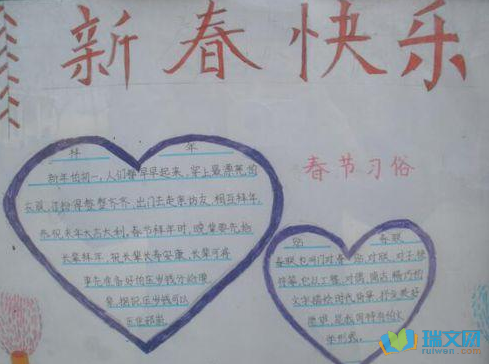 新春快乐
拜 年
新年的初一,人们都早早起来,穿上最漂亮的
衣服,打扮得整整齐齐,出门去走亲访友,相互拜年,
恭祝来年大吉大利,春节拜年时,晚辈要先给
长辈拜年,祝长辈长寿安康,长辈可将
事先准备好的压岁钱分给晚
辈,据说压岁钱可以
压住邪祟
春节习俗
贴 春联
春联也叫门对、春贴、对联、对子、桃
符等,它以工整、对偶、简洁、精巧的
文字描绘时代背景,抒发美好
愿望,是我国特有的文
学形式。
瑞文网
ruiwen.com